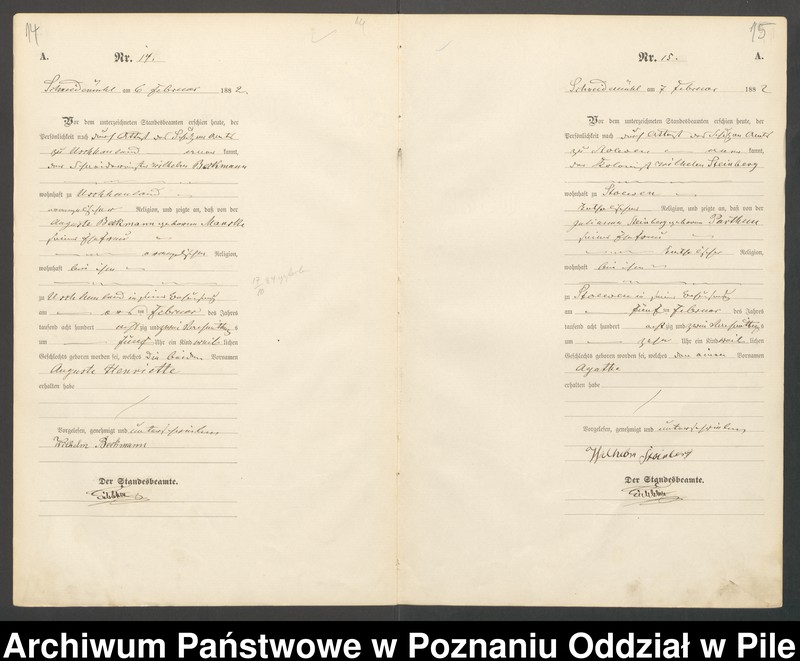 14
A.
Nr. 14.
Schneidemühl am 6 Februar 1882.
Vor dem unterzeichneten Standesbeamten erschien heute, der
Persönlichkeit nach durch Attest des Schulzen Amts
zu Uschhauland kannt,
Wilhelm Beckmann
wohnhaft zu Uschhauland
evangelischer Religion, und zeigte an, daß von der
Auguste Beckmann geborenen
seiner Ehefrau
evangelischer Religion,
wohnhaft bei ihm
zu Uschhauland in seiner Behausung
am Februar des Jahres
tausend acht hundert achtzig und zwei Nachmittags
um fünf Uhr ein Kind weiblichen
Geschlechts geboren worden sei, welches die beiden Vornamen
Auguste Henriette
erhalten habe
Vorgelesen, genehmigt und unterschrieben
Wilhelm Beckmann
Der Standesbeamte.
15
Nr. 15.
A.
Schneidemühl am 7 Februar 1882
Vor dem unterzeichneten Standesbeamten erschien heute, der
Persönlichkeit nach durch Attest des Schulzen Amts
zu kannt,
der Kolonist Wilhelm Steinberg
wohnhaft zu Stoewen
katholischer Religion, und zeigte an, daß von der
Steinberg geborenen
seiner Ehefrau
katholischer Religion,
wohnhaft bei ihm
zu Stoewen in seiner Behausung
am fünften Februar des Jahres
tausend acht hundert achtzig und zwei Vormittags
um zehn Uhr ein Kind weiblichen
Geschlechts geboren worden sei, welches den einen Vornamen
Agathe
erhalten habe
Vorgelesen, genehmigt und unterschrieben
Wilhelm Steinberg
Der Standesbeamte.
Archiwum Państwowe w Poznaniu Oddział w Pile